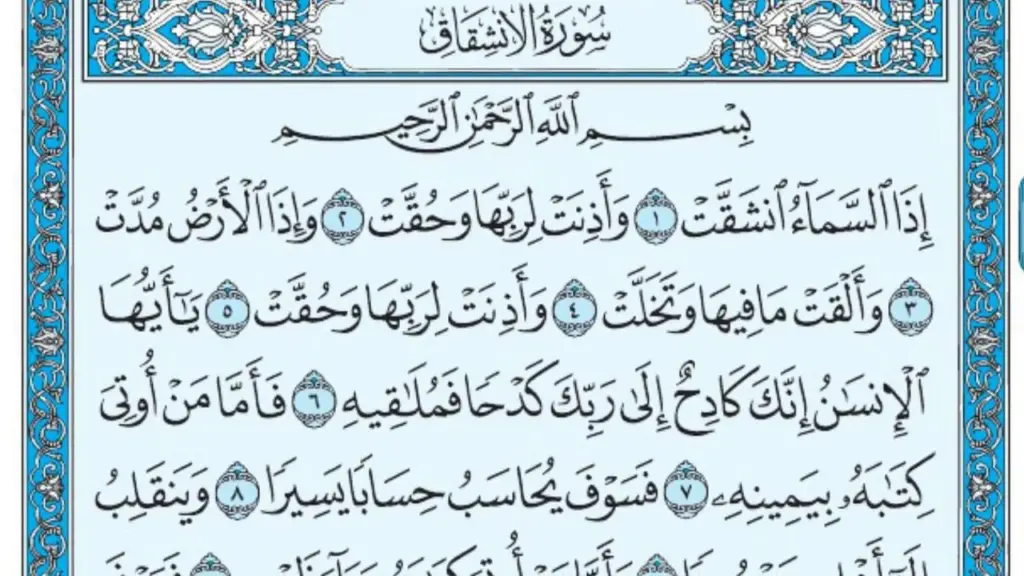 سُورَةُ الِانشِقَاقِ
بِسْمِ ٱللَّهِ ٱلرَّحْمَٰنِ ٱلرَّحِيمِ
إِذَا ٱلسَّمَآءُ ٱنشَقَّتْ ١ وَأَذِنَتْ لِرَبِّهَا وَحُقَّتْ ٢ وَإِذَا ٱلْأَرْضُ مُدَّتْ
٣ وَأَلْقَتْ مَا فِيهَا وَتَخَلَّتْ ٤ وَأَذِنَتْ لِرَبِّهَا وَحُقَّتْ ٥ يَٰٓأَيُّهَا
ٱلْإِنسَٰنُ إِنَّكَ كَادِحٌ إِلَىٰ رَبِّكَ كَدْحًا فَمُلَٰقِيهِ ٦ فَأَمَّا مَنْ أُوتِىَ
كِتَٰبَهُۥ بِيَمِينِهِۦ ٧ فَسَوْفَ يُحَاسَبُ حِسَابًا يَسِيرًا ٨ وَيَنقَلِبُ